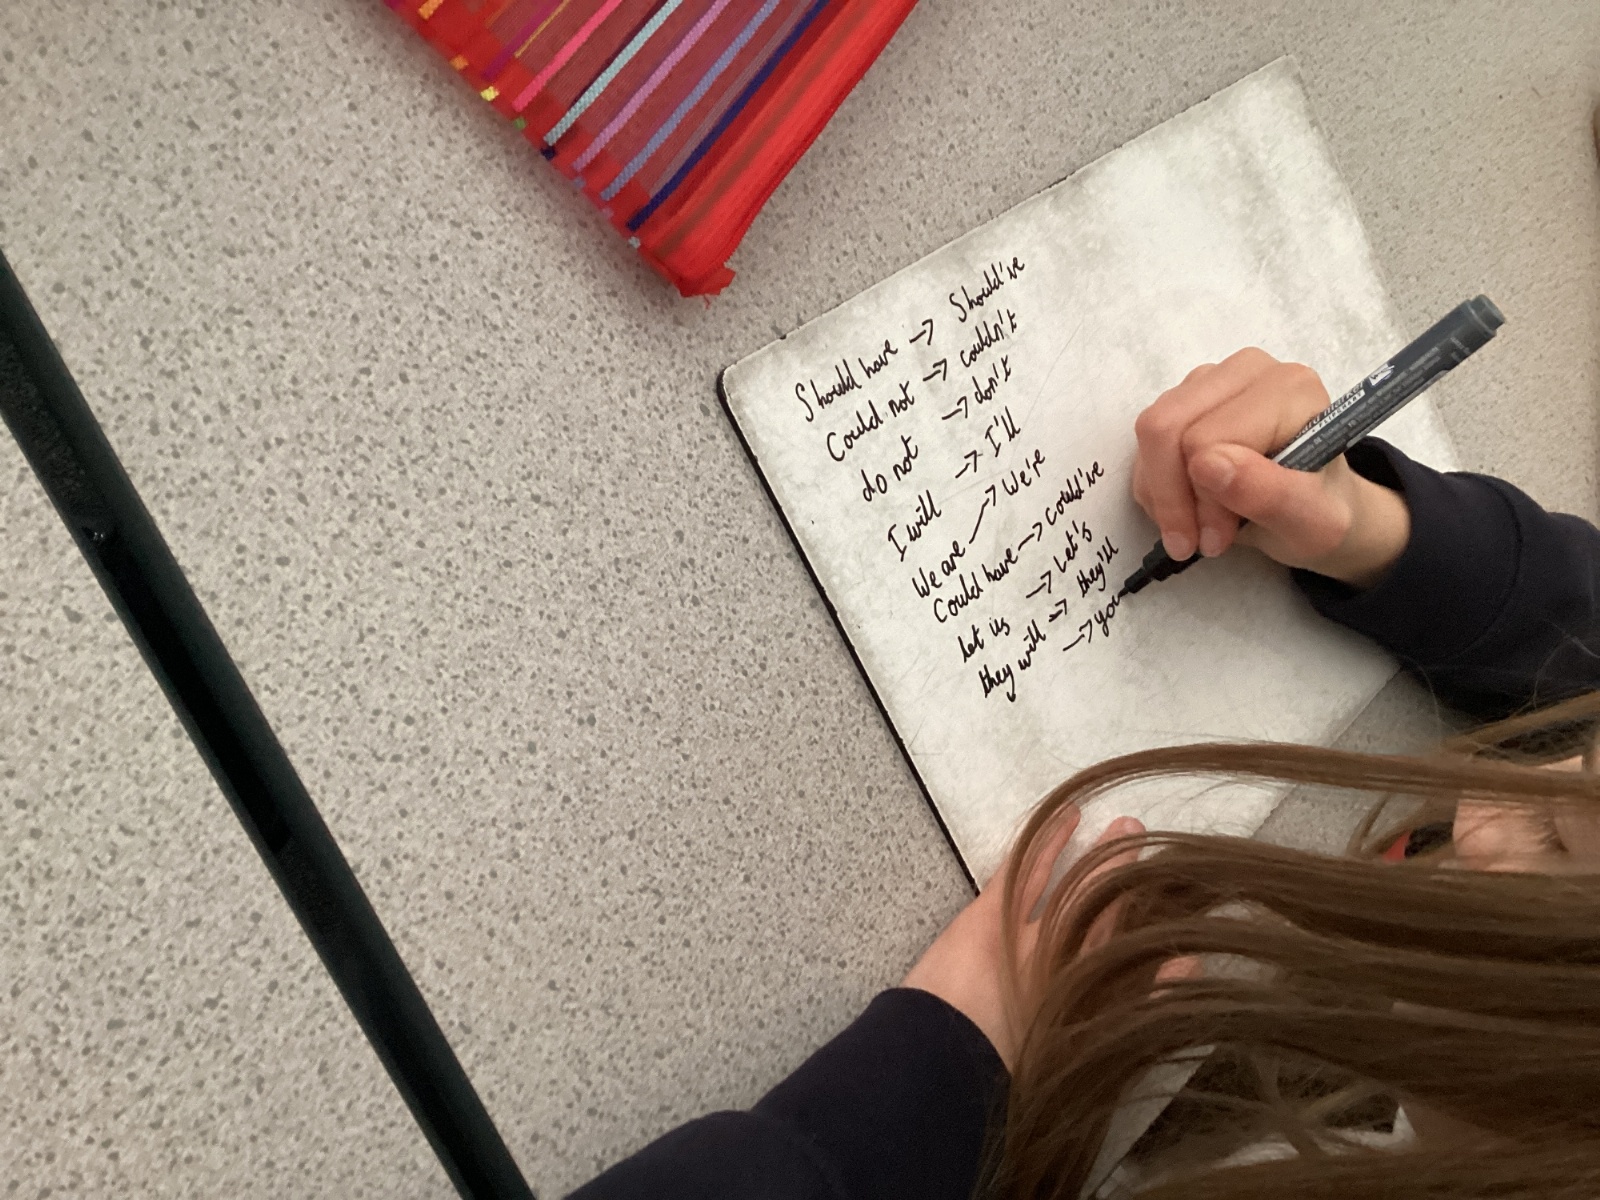 Should have → Should've
Could not → couldn't
do not → don't
I will → I'll
We are → We're
Could have → could've
let us → let's
they will → they'll
→ you
board marker